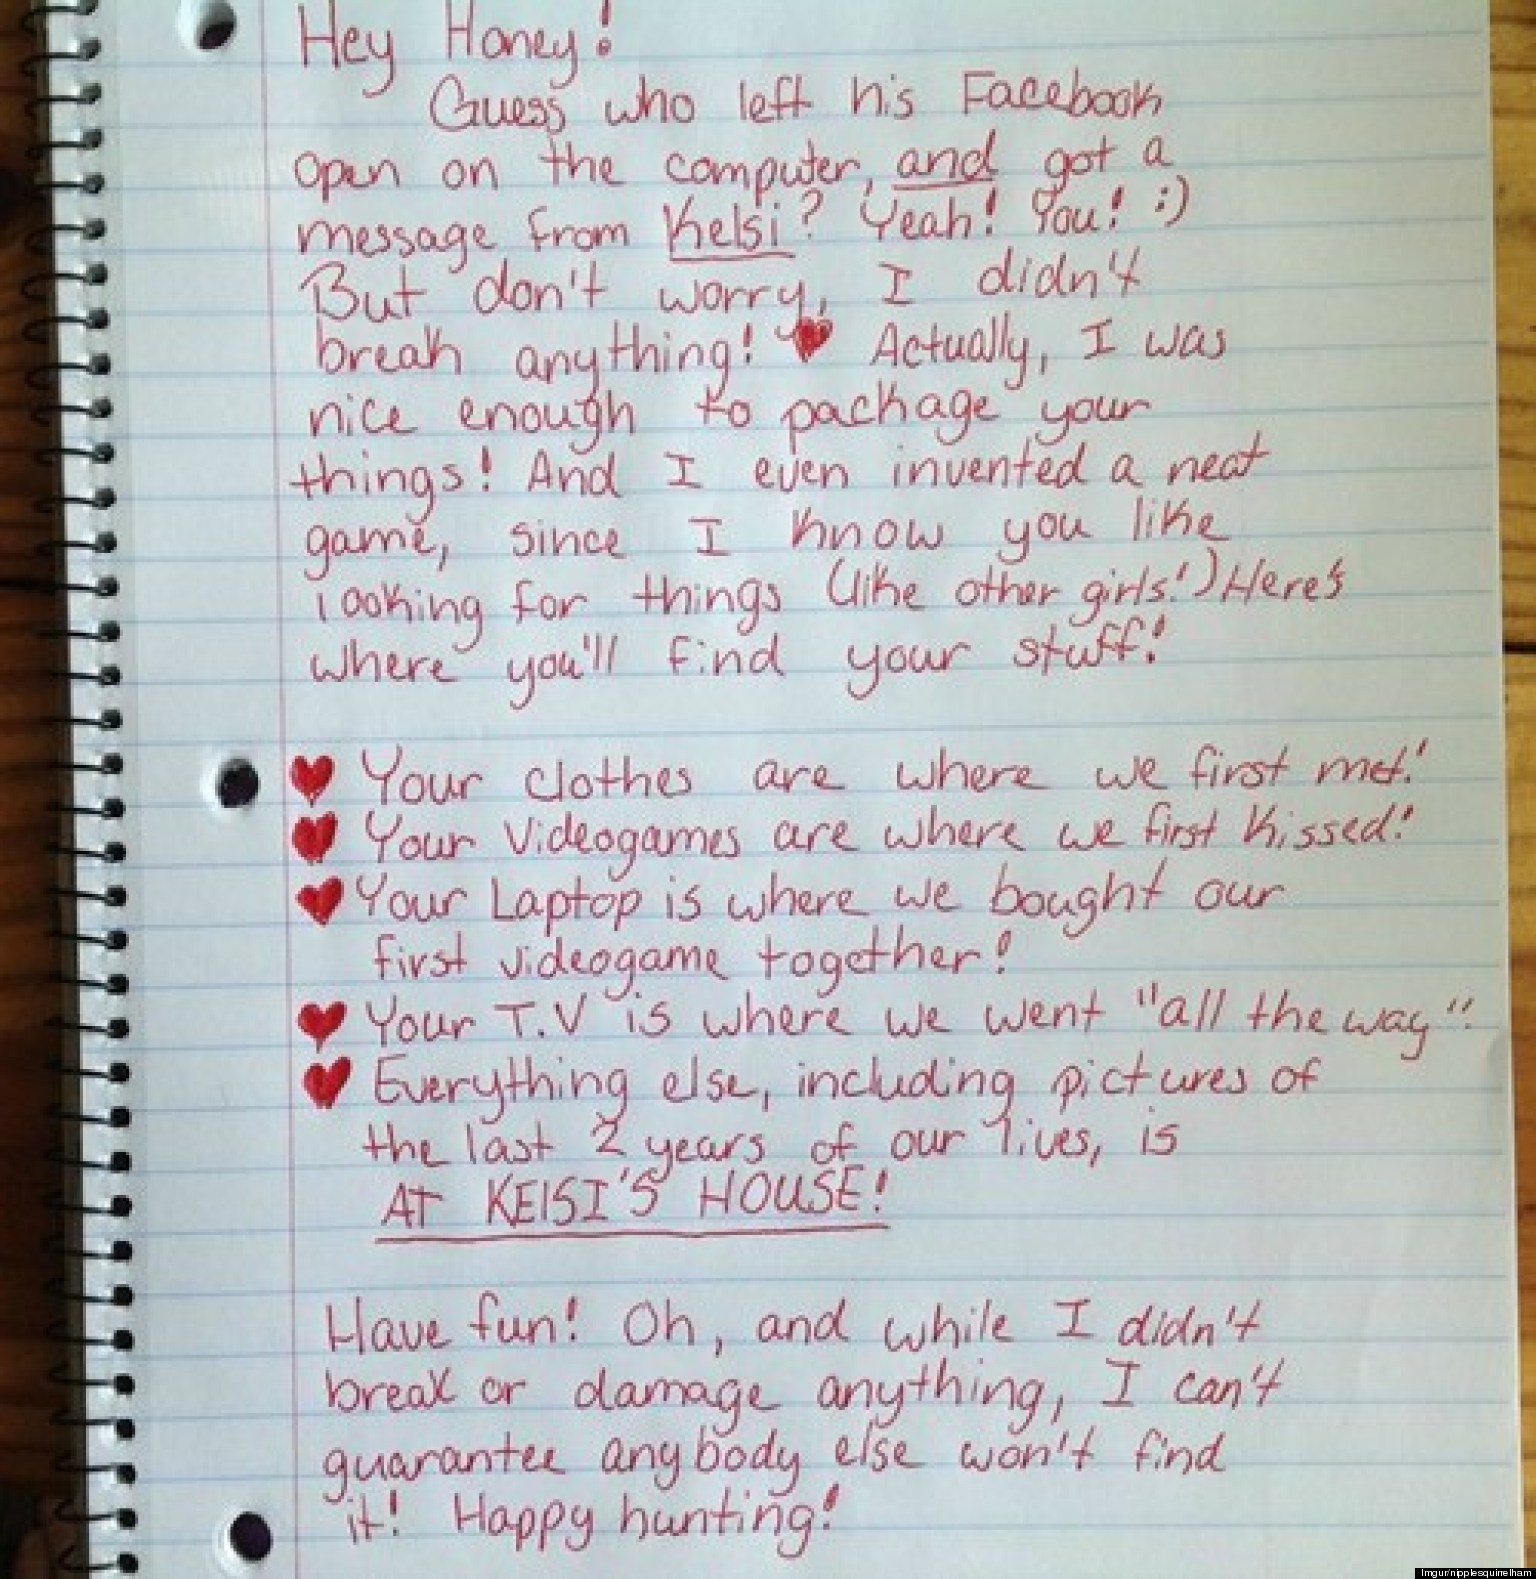 Hey Honey!
Guess who left his Facebook
open on the computer, and got a
message from Kelsi? Yeah! You! :)
But don't worry, I didn't
break anything! ♥ Actually, I was
nice enough to package your
things! And I even invented a neat
game, since I know you like
looking for things (like other girls!) Here's
where you'll find your stuff!
♥ Your clothes are where we first met!
♥ Your Videogames are where we first kissed!
♥ Your Laptop is where we bought our
first videogame together!
♥ Your T.V is where we went "all the way".
♥ Everything else, including pictures of
the last 2 years of our lives, is
AT KElSI'S HOUSE!
Have fun! Oh, and while I didn't
break or damage anything, I can't
guarantee anybody else won't find
it! Happy hunting!
Imgur/nipplesquirrelham